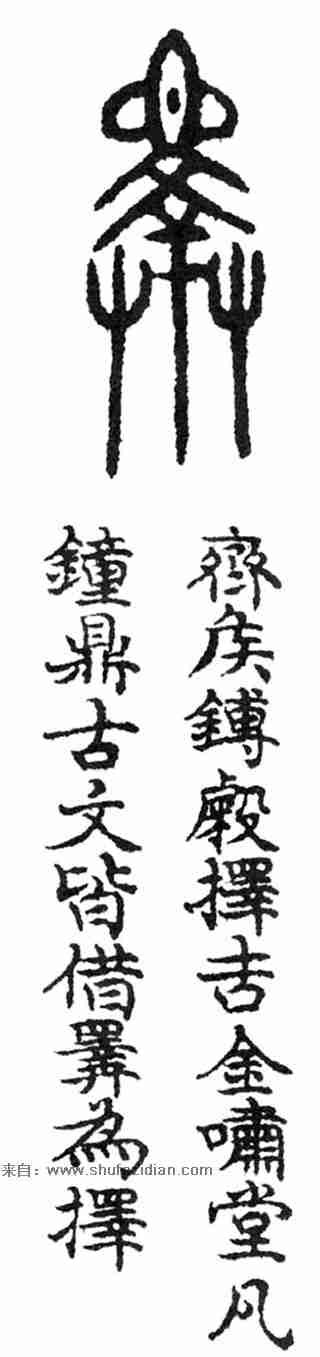 齊矦鎛擇吉金嘯堂凡
鐘鼎古文皆借睪為擇
来自：www.shufazidian.com